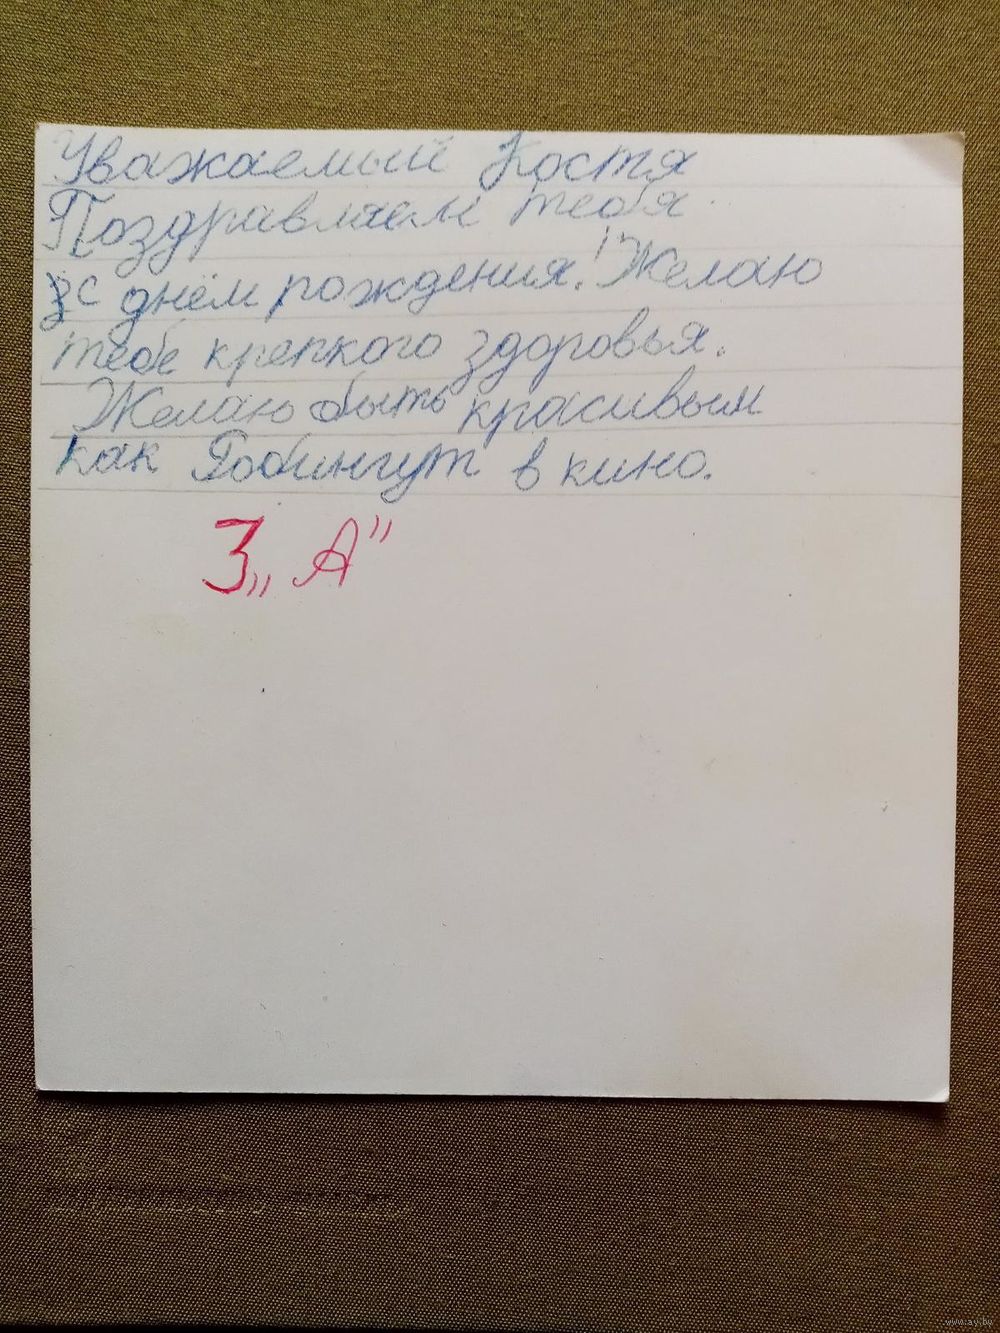 Уважаемый Костя
Поздравляем тебя
с днём рождения.! Желаю
тебе крепкого здоровья.
Желаю быть красивым
как Робингут в кино.
3 „А”
www.ay.by